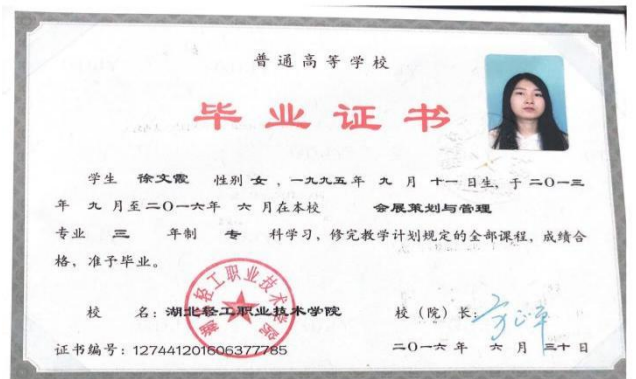 普通高等学校
毕业证书
学生 徐文霞 性别 女 ，一九九五年 九 月 十一 日生，于二〇一三
年 九 月至二〇一六年 六 月在本校 会展策划与管理
专业 三 年制 专 科学习，修完教学计划规定的全部课程，成绩合
格，准予毕业。
校 名：湖北轻工职业技术学院 校（院）长：
证书编号：127441201606377785 二〇一六年 六 月 三十日